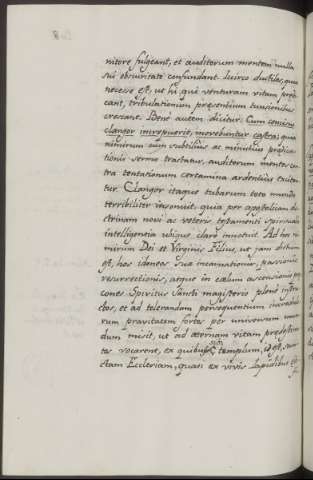 nitore fulgeant, et auditorum mentem nulla
sui obscuritate confundant. Idcirco ductiles, quia
necesse est, ut hi, qui venturam vitam prædi
cant, tribulationum præsentium tunsionibus
crescant. Bene autem dicitur: Cum concisus
clangor increpuerit, movebuntur castra; quia
nimirum cum subtilius ac minutius prædica
tionis sermo tractatur, auditorum mentes con
tra tentationum certamina ardentius excitan
tur. Clangor itaque tubarum toto mundo
terribiliter insonuit, quia per apostolicam do
ctrinam novi ac veteris testamenti spiritualis
intelligentia ubique clare innotuit. Ad hos ni
mirum Dei et Virginis Filius, ut jam dictum
est, hos idoneos suæ incarnationis, passionis
resurrectionis, atque in cælum ascensionis præ
cones Spiritus Sancti magisterio plene instru
ctos, et ad tolerandam persequentium iniquo
rum pravitatem fortes per universum mun
dum misit, ut ad æternam vitam prædestina
tos vocarent, ex quibus templum, id est, san
ctam Ecclesiam, quasi ex vivis lapidibus